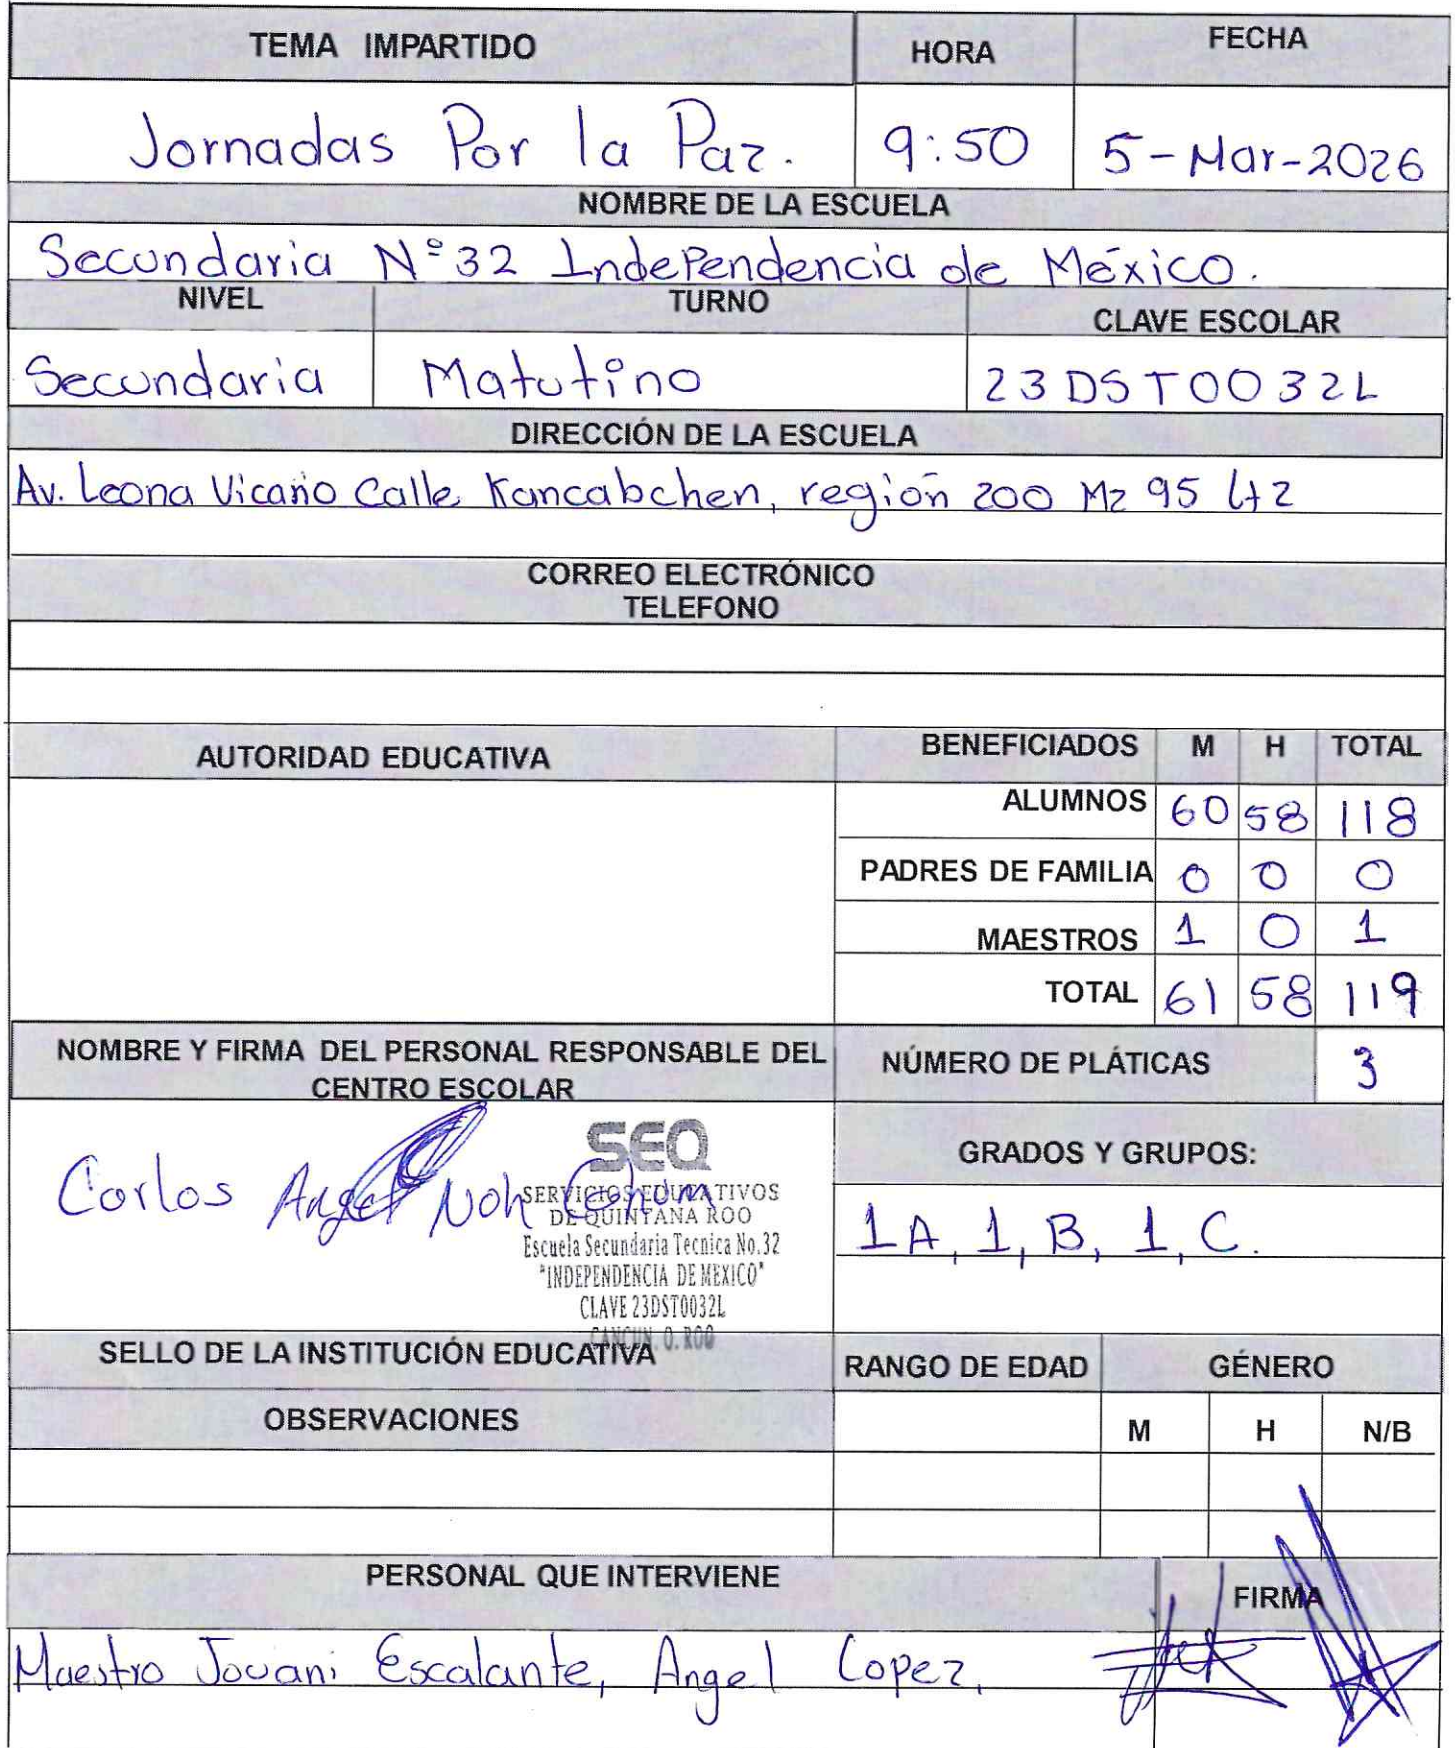 TEMA IMPARTIDO HORA FECHA
Jornadas Por la Paz. 9:50 5-Mar-2026
NOMBRE DE LA ESCUELA
Secundaria Nº32 Independencia de México.
NIVEL TURNO CLAVE ESCOLAR
Secundaria Matutino 23DST0032L
DIRECCIÓN DE LA ESCUELA
Av. Leona Vicario Calle Kancabchen, región 200 Mz 95 Lt 2
CORREO ELECTRÓNICO
TELEFONO
AUTORIDAD EDUCATIVA BENEFICIADOS M H TOTAL
ALUMNOS 60 58 118
PADRES DE FAMILIA 0 0 0
MAESTROS 1 0 1
TOTAL 61 58 119
NOMBRE Y FIRMA DEL PERSONAL RESPONSABLE DEL
CENTRO ESCOLAR
NÚMERO DE PLÁTICAS 3
Carlos Angel Noh
SEQ
SERVICIOS EDUCATIVOS
DE QUINTANA ROO
Escuela Secundaria Tecnica No.32
"INDEPENDENCIA DE MEXICO"
CLAVE 23DST0032L
CANCUN, Q. ROO
GRADOS Y GRUPOS:
1A, 1, B, 1, C.
SELLO DE LA INSTITUCIÓN EDUCATIVA RANGO DE EDAD GÉNERO
OBSERVACIONES M H N/B
PERSONAL QUE INTERVIENE FIRMA
Maestro Jovani Escalante, Angel Lopez,